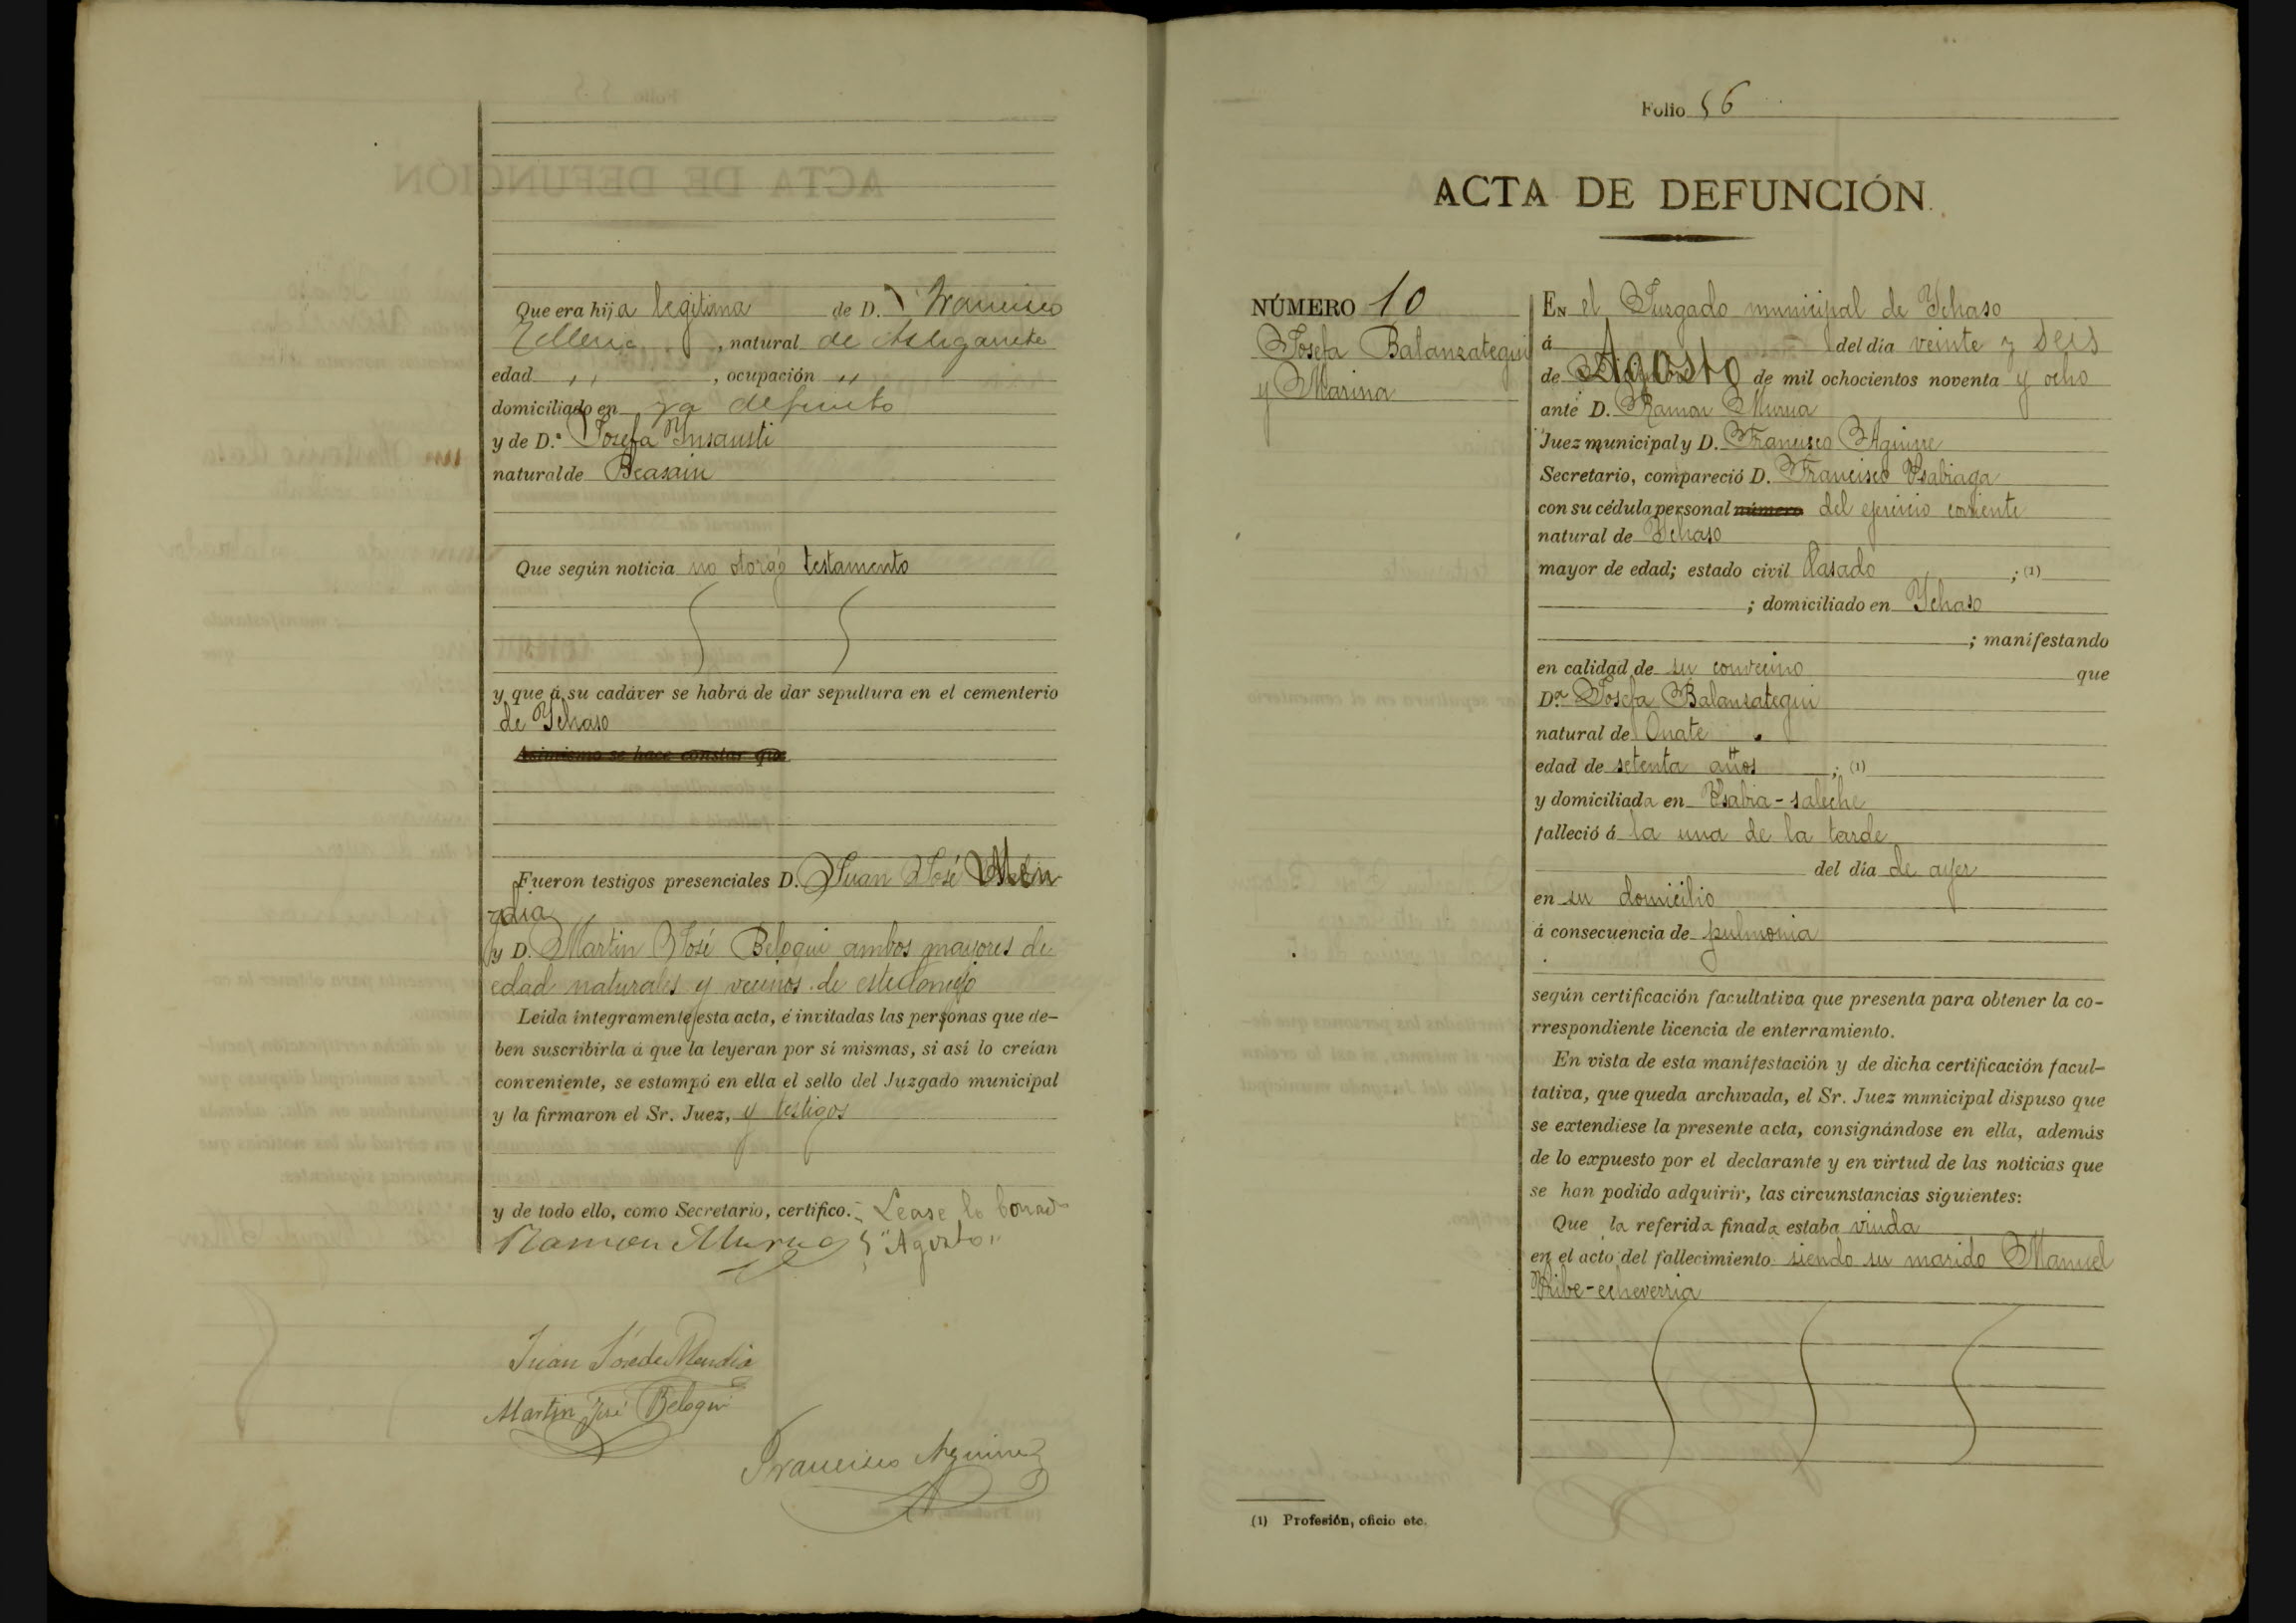 Que era hija legitima de D. Francisco
Telleria, natural de Astigarreta
edad ,, , ocupación ,,
domiciliado en ya defunto
y de D.ª Josefa Ynsausti
natural de Beasain
Que según noticia no otorgó testamento
y que á su cadáver se habrá de dar sepultura en el cementerio
de Ychaso
Asimismo se hace constar que
Fueron testigos presenciales D. Juan José Men
dia
y D. Martin José Beloqui ambos mayores de
edad naturales y vecinos de este Concejo
Leída íntegramente esta acta, é invitadas las personas que de-
ben suscribirla á que la leyeran por sí mismas, si así lo creían
conveniente, se estampó en ella el sello del Juzgado municipal
y la firmaron el Sr. Juez, y testigos
y de todo ello, como Secretario, certifico.- Lease lo borrado
Ramon Murua "Agosto"
Juan José de Mendia
Martin José Beloqui
Francisco Aguirre
Folio 56
ACTA DE DEFUNCIÓN.
NÚMERO 10
Josefa Balanzategui
y Marina
EN el Juzgado municipal de Ychaso
á del día veinte y seis
de Agosto de mil ochocientos noventa y ocho
ante D. Ramon Murua
Juez municipal y D. Francisco Aguirre
Secretario, compareció D. Francisco Ysabiaga
con su cédula personal número del ejercicio corriente
natural de Ychaso
mayor de edad; estado civil Casado ; (1)
; domiciliado en Ychaso
; manifestando
en calidad de su convecino que
D.ª Josefa Balanzategui
natural de Oñate
edad de setenta años ; (1)
y domiciliada en Ysabia-saleche
falleció á la una de la tarde
del día de ayer
en su domicilio
á consecuencia de pulmonia
según certificación facultativa que presenta para obtener la co-
rrespondiente licencia de enterramiento.
En vista de esta manifestación y de dicha certificación facul-
tativa, que queda archivada, el Sr. Juez municipal dispuso que
se extendiese la presente acta, consignándose en ella, además
de lo expuesto por el declarante y en virtud de las noticias que
se han podido adquirir, las circunstancias siguientes:
Que la referida finada estaba viuda
en el acto del fallecimiento siendo su marido Manuel
Uribe-echeverria
(1) Profesión, oficio etc.